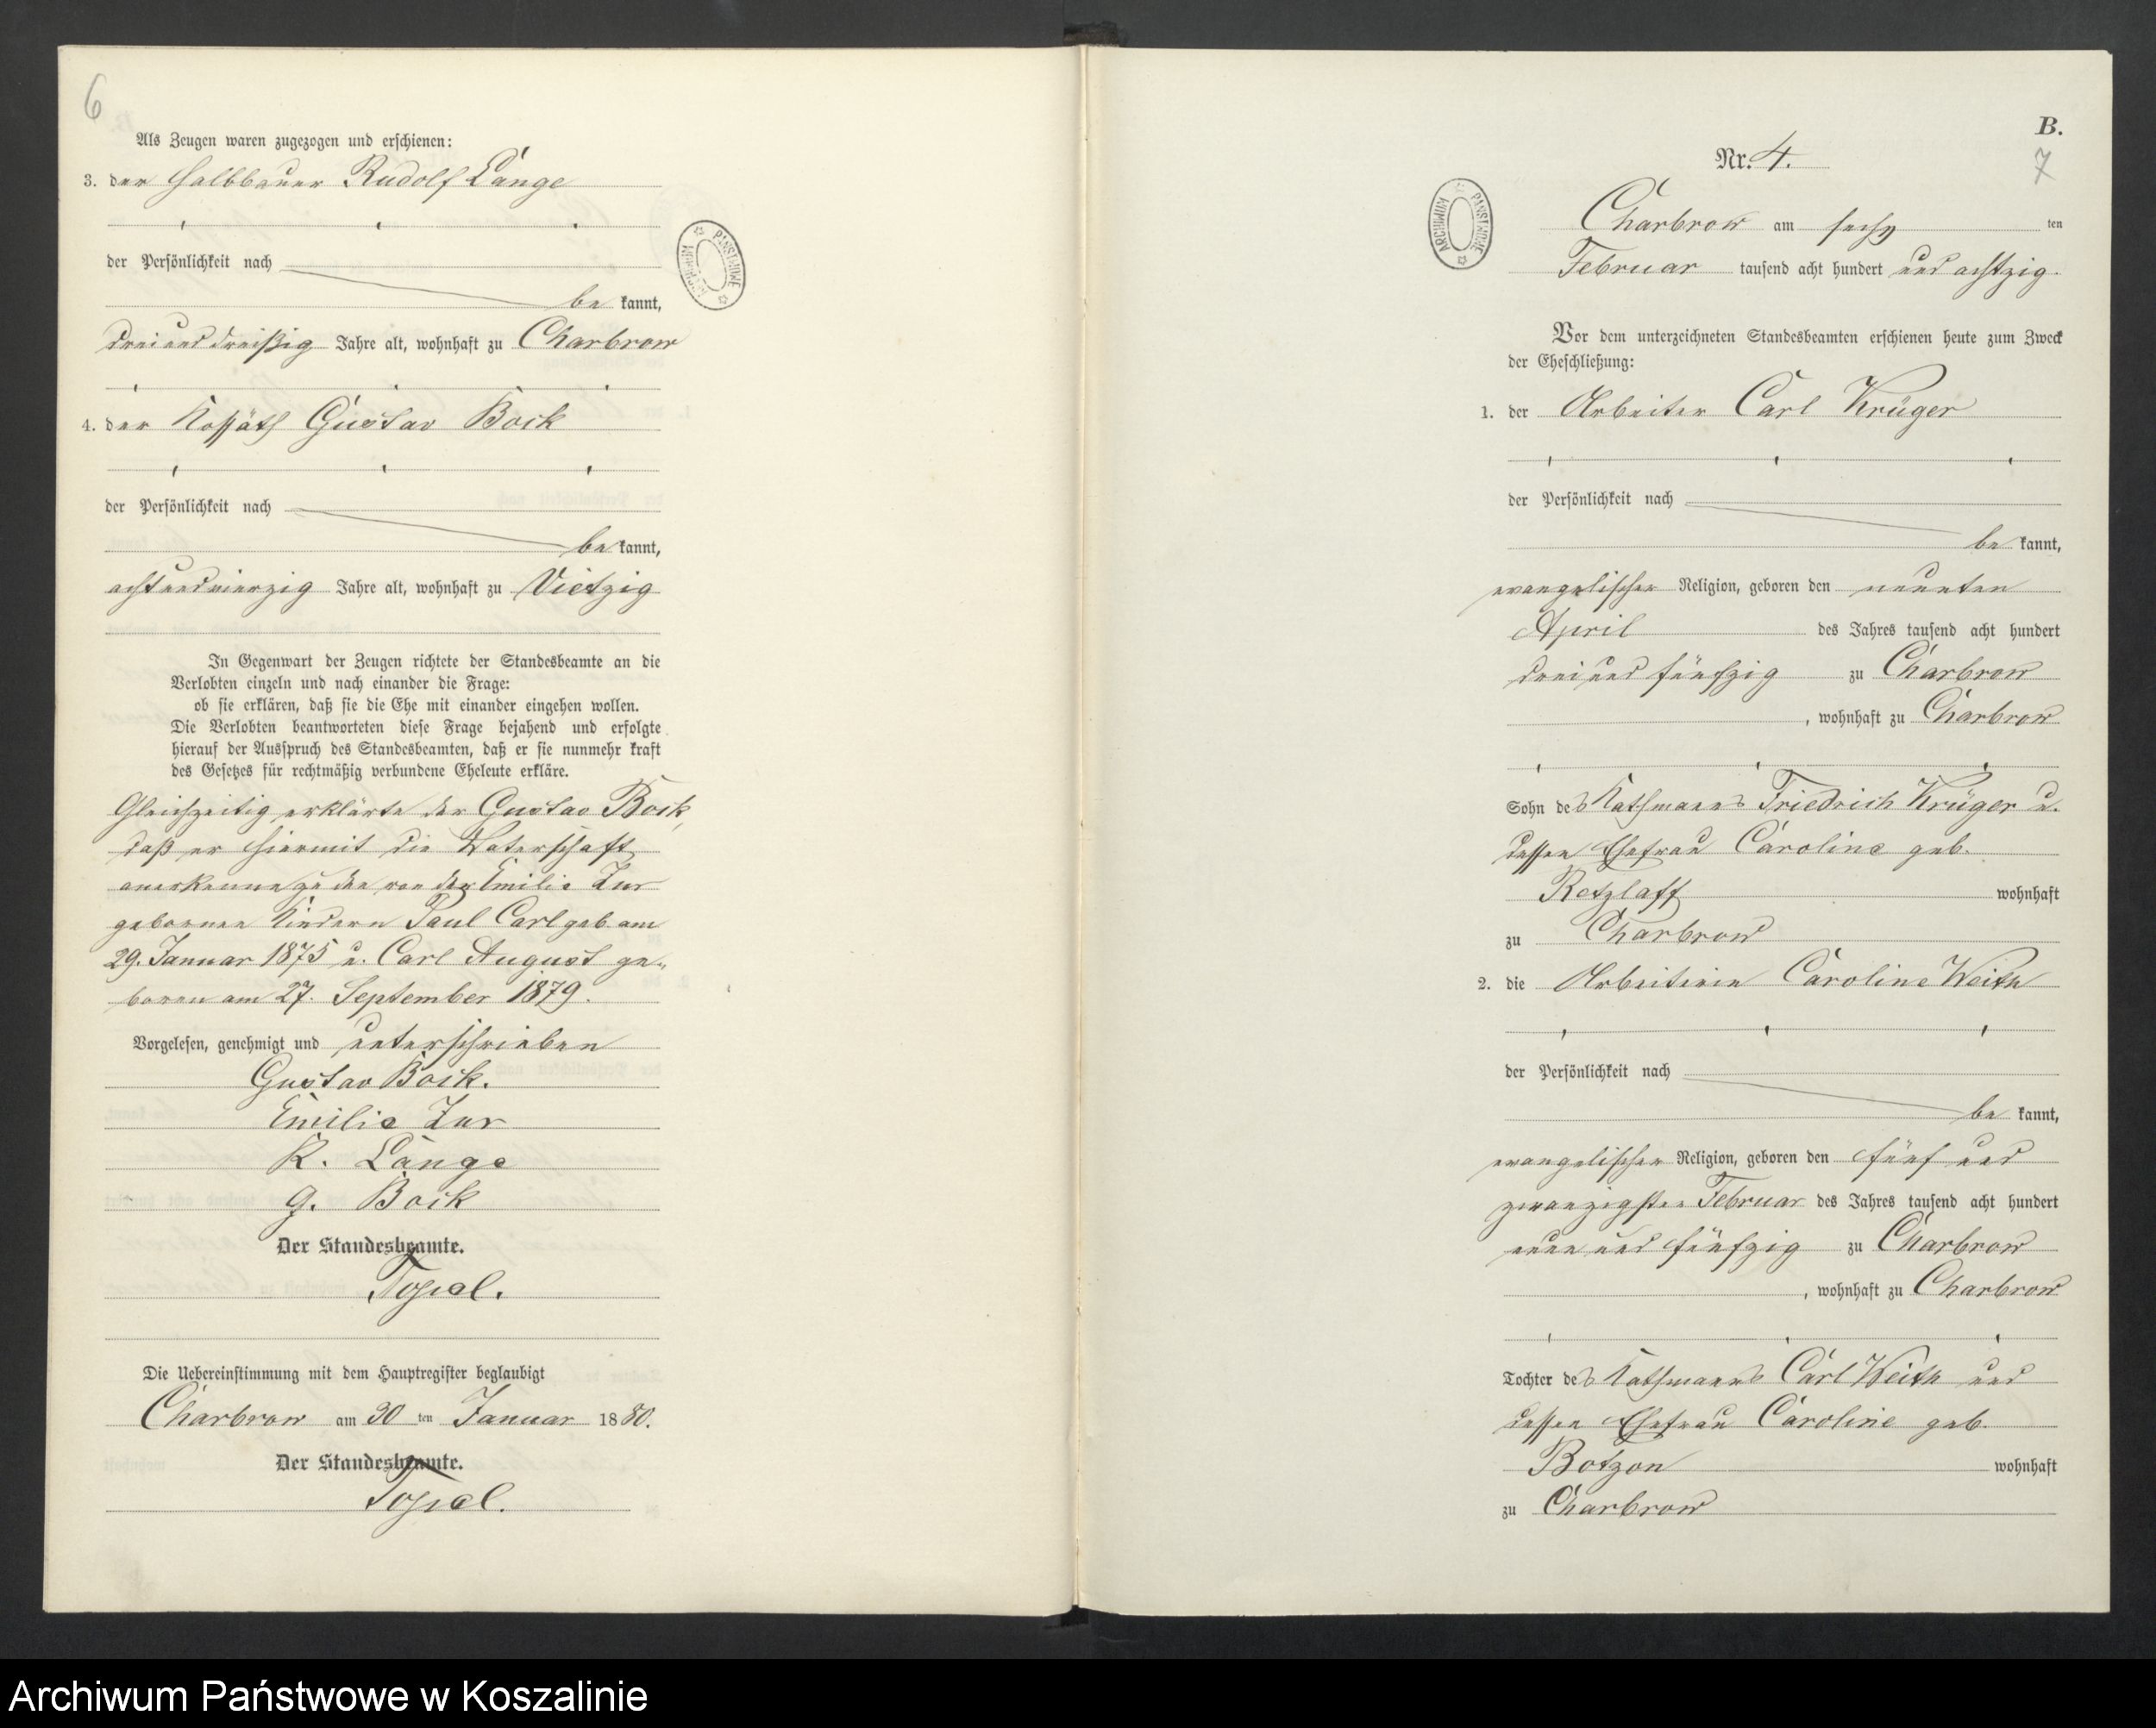 6
Als Zeugen waren zugezogen und erschienen:
3. der Halbbauer Rudolf Lange
der Persönlichkeit nach
be kannt,
dreiunddreißig Jahre alt, wohnhaft zu Charbrow
4. der Kossäth Gustav Bock
der Persönlichkeit nach
be kannt,
achtundvierzig Jahre alt, wohnhaft zu Vietzig
In Gegenwart der Zeugen richtete der Standesbeamte an die
Verlobten einzeln und nach einander die Frage:
ob sie erklären, daß sie die Ehe mit einander eingehen wollen.
Die Verlobten beantworteten diese Frage bejahend und erfolgte
hierauf der Ausspruch des Standesbeamten, daß er sie nunmehr kraft
des Gesetzes für rechtmäßig verbundene Eheleute erkläre.
Gleichzeitig erklärte der Gustav Bock,
daß er hiermit die Vaterschaft
anerkenne zu den von der Emilie Zur
gebornen Kindern Paul Carl geb. am
29. Januar 1875 u. Carl August ge-
boren am 27. September 1879.
Vorgelesen, genehmigt und unterschrieben
Gustav Bock.
Emilie Zur
R. Lange
G. Bock
Der Standesbeamte.
Die Uebereinstimmung mit dem Hauptregister beglaubigt
Charbrow am 30 ten Januar 1880.
Der Standesbeamte.
ARCHIWUM PAŃSTWOWE
B.
7
Nr. 4.
ARCHIWUM PAŃSTWOWE
Charbrow am sechs ten
Februar tausend acht hundert und achtzig.
Vor dem unterzeichneten Standesbeamten erschienen heute zum Zweck
der Eheschließung:
1. der Arbeiter Carl Krüger
der Persönlichkeit nach
be kannt,
evangelischer Religion, geboren den neunten
April des Jahres tausend acht hundert
drei und fünfzig zu Charbrow
, wohnhaft zu Charbrow
Sohn des Kathmanns Friedrich Krüger u.
dessen Ehefrau Caroline geb.
Retzlaff wohnhaft
zu Charbrow
2. die Arbeiterin Caroline Weith
der Persönlichkeit nach
be kannt,
evangelischer Religion, geboren den fünf und
zwanzigsten Februar des Jahres tausend acht hundert
neun und fünfzig zu Charbrow
, wohnhaft zu Charbrow
Tochter des Kathmanns Carl Weith und
dessen Ehefrau Caroline geb.
Botzon wohnhaft
zu Charbrow
Archiwum Państwowe w Koszalinie